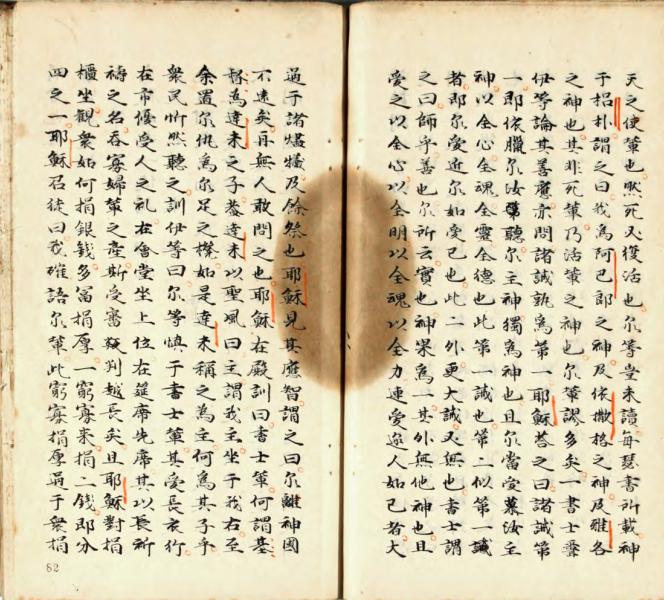 天之使輩也然死又復活也尔等豈未讀每瑟書所載神
于棘朴謂之曰我為阿巴郎之神及依撒格之神及雅各
之神也其非死輩乃活輩之神也尔輩謬多矣一書士聽
伊等論其善應亦問諸誡孰為第一耶穌荅之曰諸誡第
一即依臘尔汝聽尔主神獨為神也且尔當愛慕汝主
神以全心全魂全靈全德也此第一誡也第二似第一誡
者即尔愛近尔如愛己也此二外更大誡又無也書士謂
之曰師乎善也尔所云實也神果為一其外無他神也且
愛之以全心以全明以全魂以全力連愛邇人如己者大
過于諸燔犧及餘祭也耶穌見其應智謂之曰尔離神國
不遠矣再無人敢問之也耶穌在殿訓曰書士輩何謂基
督為達未之子蓋達未以聖風曰主謂我主坐于我右至
余置尔仇為尔足之櫈如是達未稱之為主何為其子乎
衆民忻然聽之訓伊等曰尔等慎于書士輩其愛長衣行
在市愛受人之礼在會堂坐上位在筵席先席其以長祈
禱之名吞寡婦輩之產斯受審輙判越長矣且耶穌對捐
櫃坐觀衆如何捐銀錢多富捐厚一窮寡來捐二錢即分
四之一耶穌召徒曰我確語尔輩此窮寡捐厚過于衆捐
82